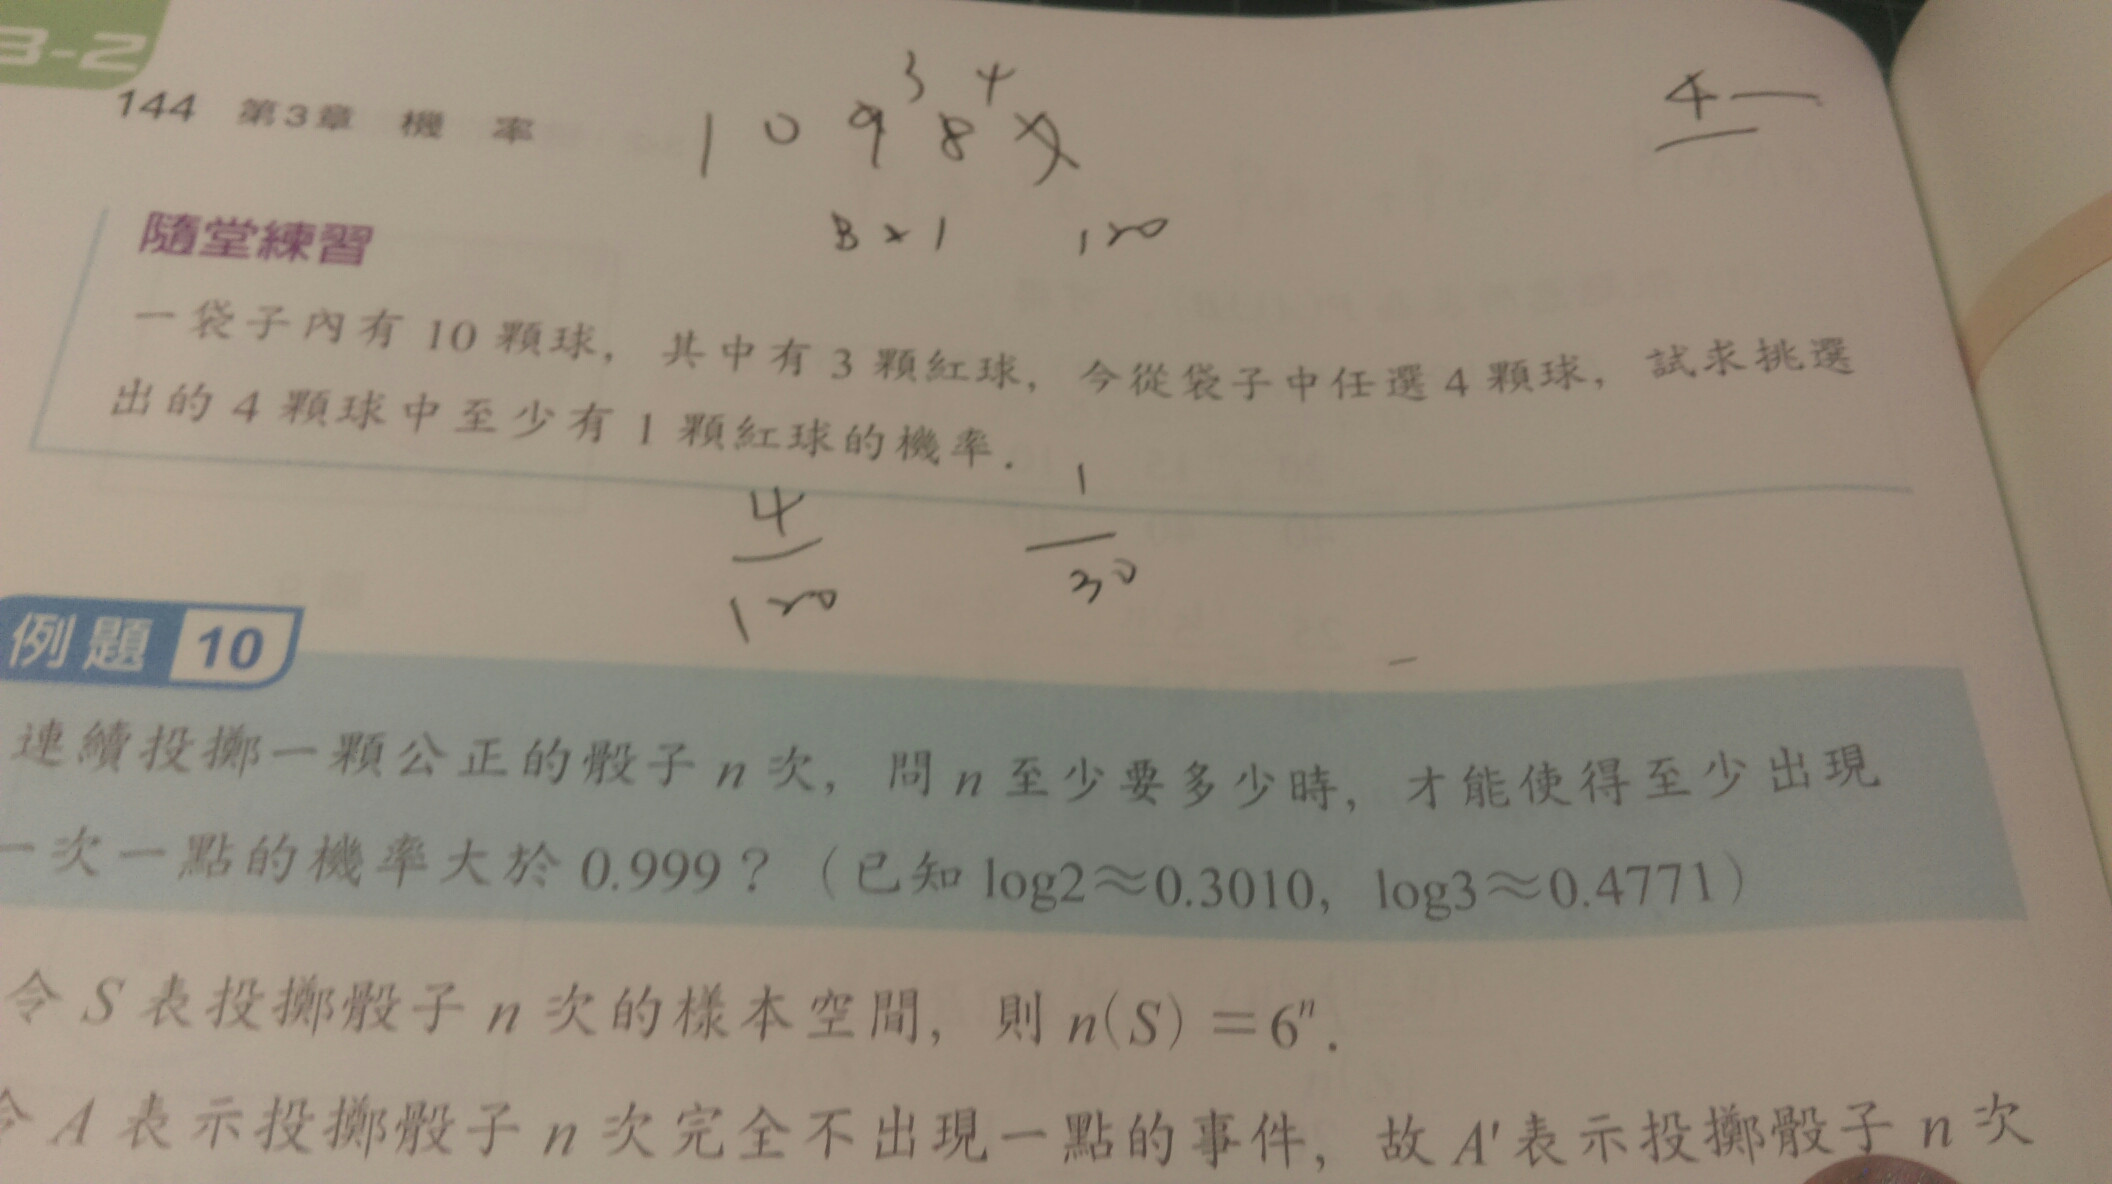 3-2
144 第3章 機 率
3 4
1 0 9 8
4
3 × 1 120
隨堂練習
一袋子內有 10 顆球，其中有 3 顆紅球，今從袋子中任選 4 顆球，試求挑選
出的 4 顆球中至少有 1 顆紅球的機率．
4 1
120 30
例題 10
連續投擲一顆公正的骰子 n 次，問 n 至少要多少時，才能使得至少出現
一次一點的機率大於 0.999？（已知 log2≈0.3010，log3≈0.4771）
令 S 表投擲骰子 n 次的樣本空間，則 n(S)＝6ⁿ．
令 A 表示投擲骰子 n 次完全不出現一點的事件，故 A' 表示投擲骰子 n 次